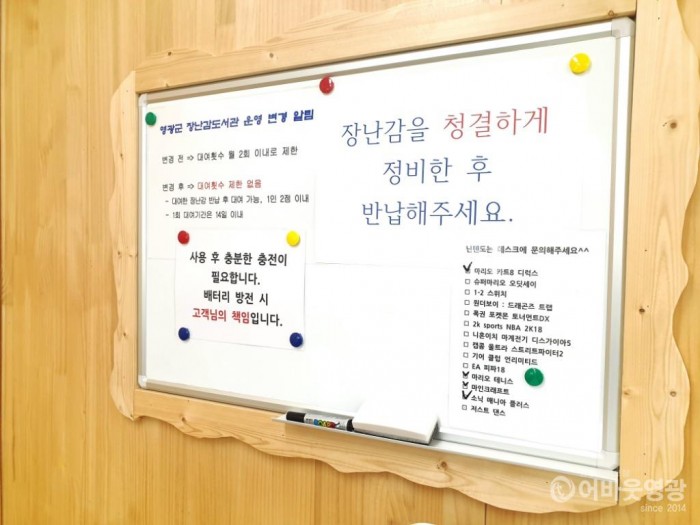 영광군 장난감도서관 운영 변경 알림
변경 전 => 대여횟수 월 2회 이내로 제한
변경 후 => 대여횟수 제한 없음
- 대여한 장난감 반납 후 대여 가능, 1인 2점 이내
- 1회 대여기간은 14일 이내
사용 후 충분한 충전이
필요합니다.
배터리 방전 시
고객님의 책임입니다.
장난감을 청결하게
정비한 후
반납해주세요.
닌텐도는 데스크에 문의해주세요^^
마리오 카트8 디럭스
슈퍼마리오 오딧세이
1-2 스위치
원더보이 : 드래곤즈 트랩
폭권 포켓몬 토너먼트DX
2k sports NBA 2K18
니혼이치 마계전기 디스가이아5
캡콤 울트라 스트리트파이터2
기어 클럽 언리미티드
EA 피파18
마리오 테니스
마인크래프트
소닉 매니아 플러스
저스트 댄스
어바웃영광
since 2014